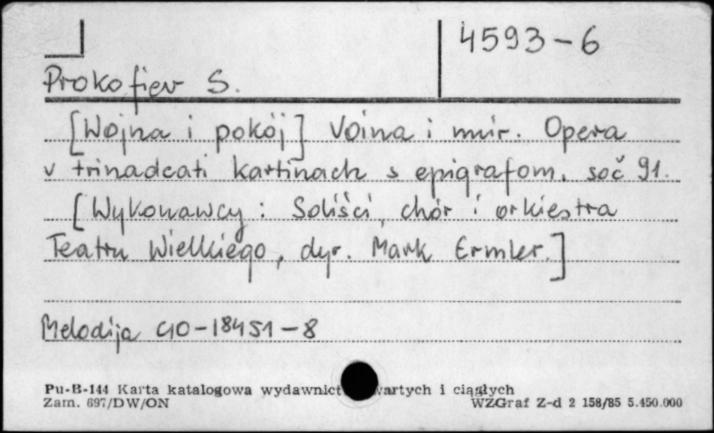 4593-6
Prokofiev S.
[Wojna i pokój] Voina i mir. Opera
v trinadcati kartinach s epigrafom. soč 91.
[Wykonawcy: Soliści, chór i orkiestra
Teatru Wielkiego, dyr. Mark Ermler.]
Melodija C10-18451-8
Pu-B-144 Karta katalogowa wydawnict wartych i ciągłych
Zam. 697/DW/ON WZGraf Z-d 2 158/85 5.450.000